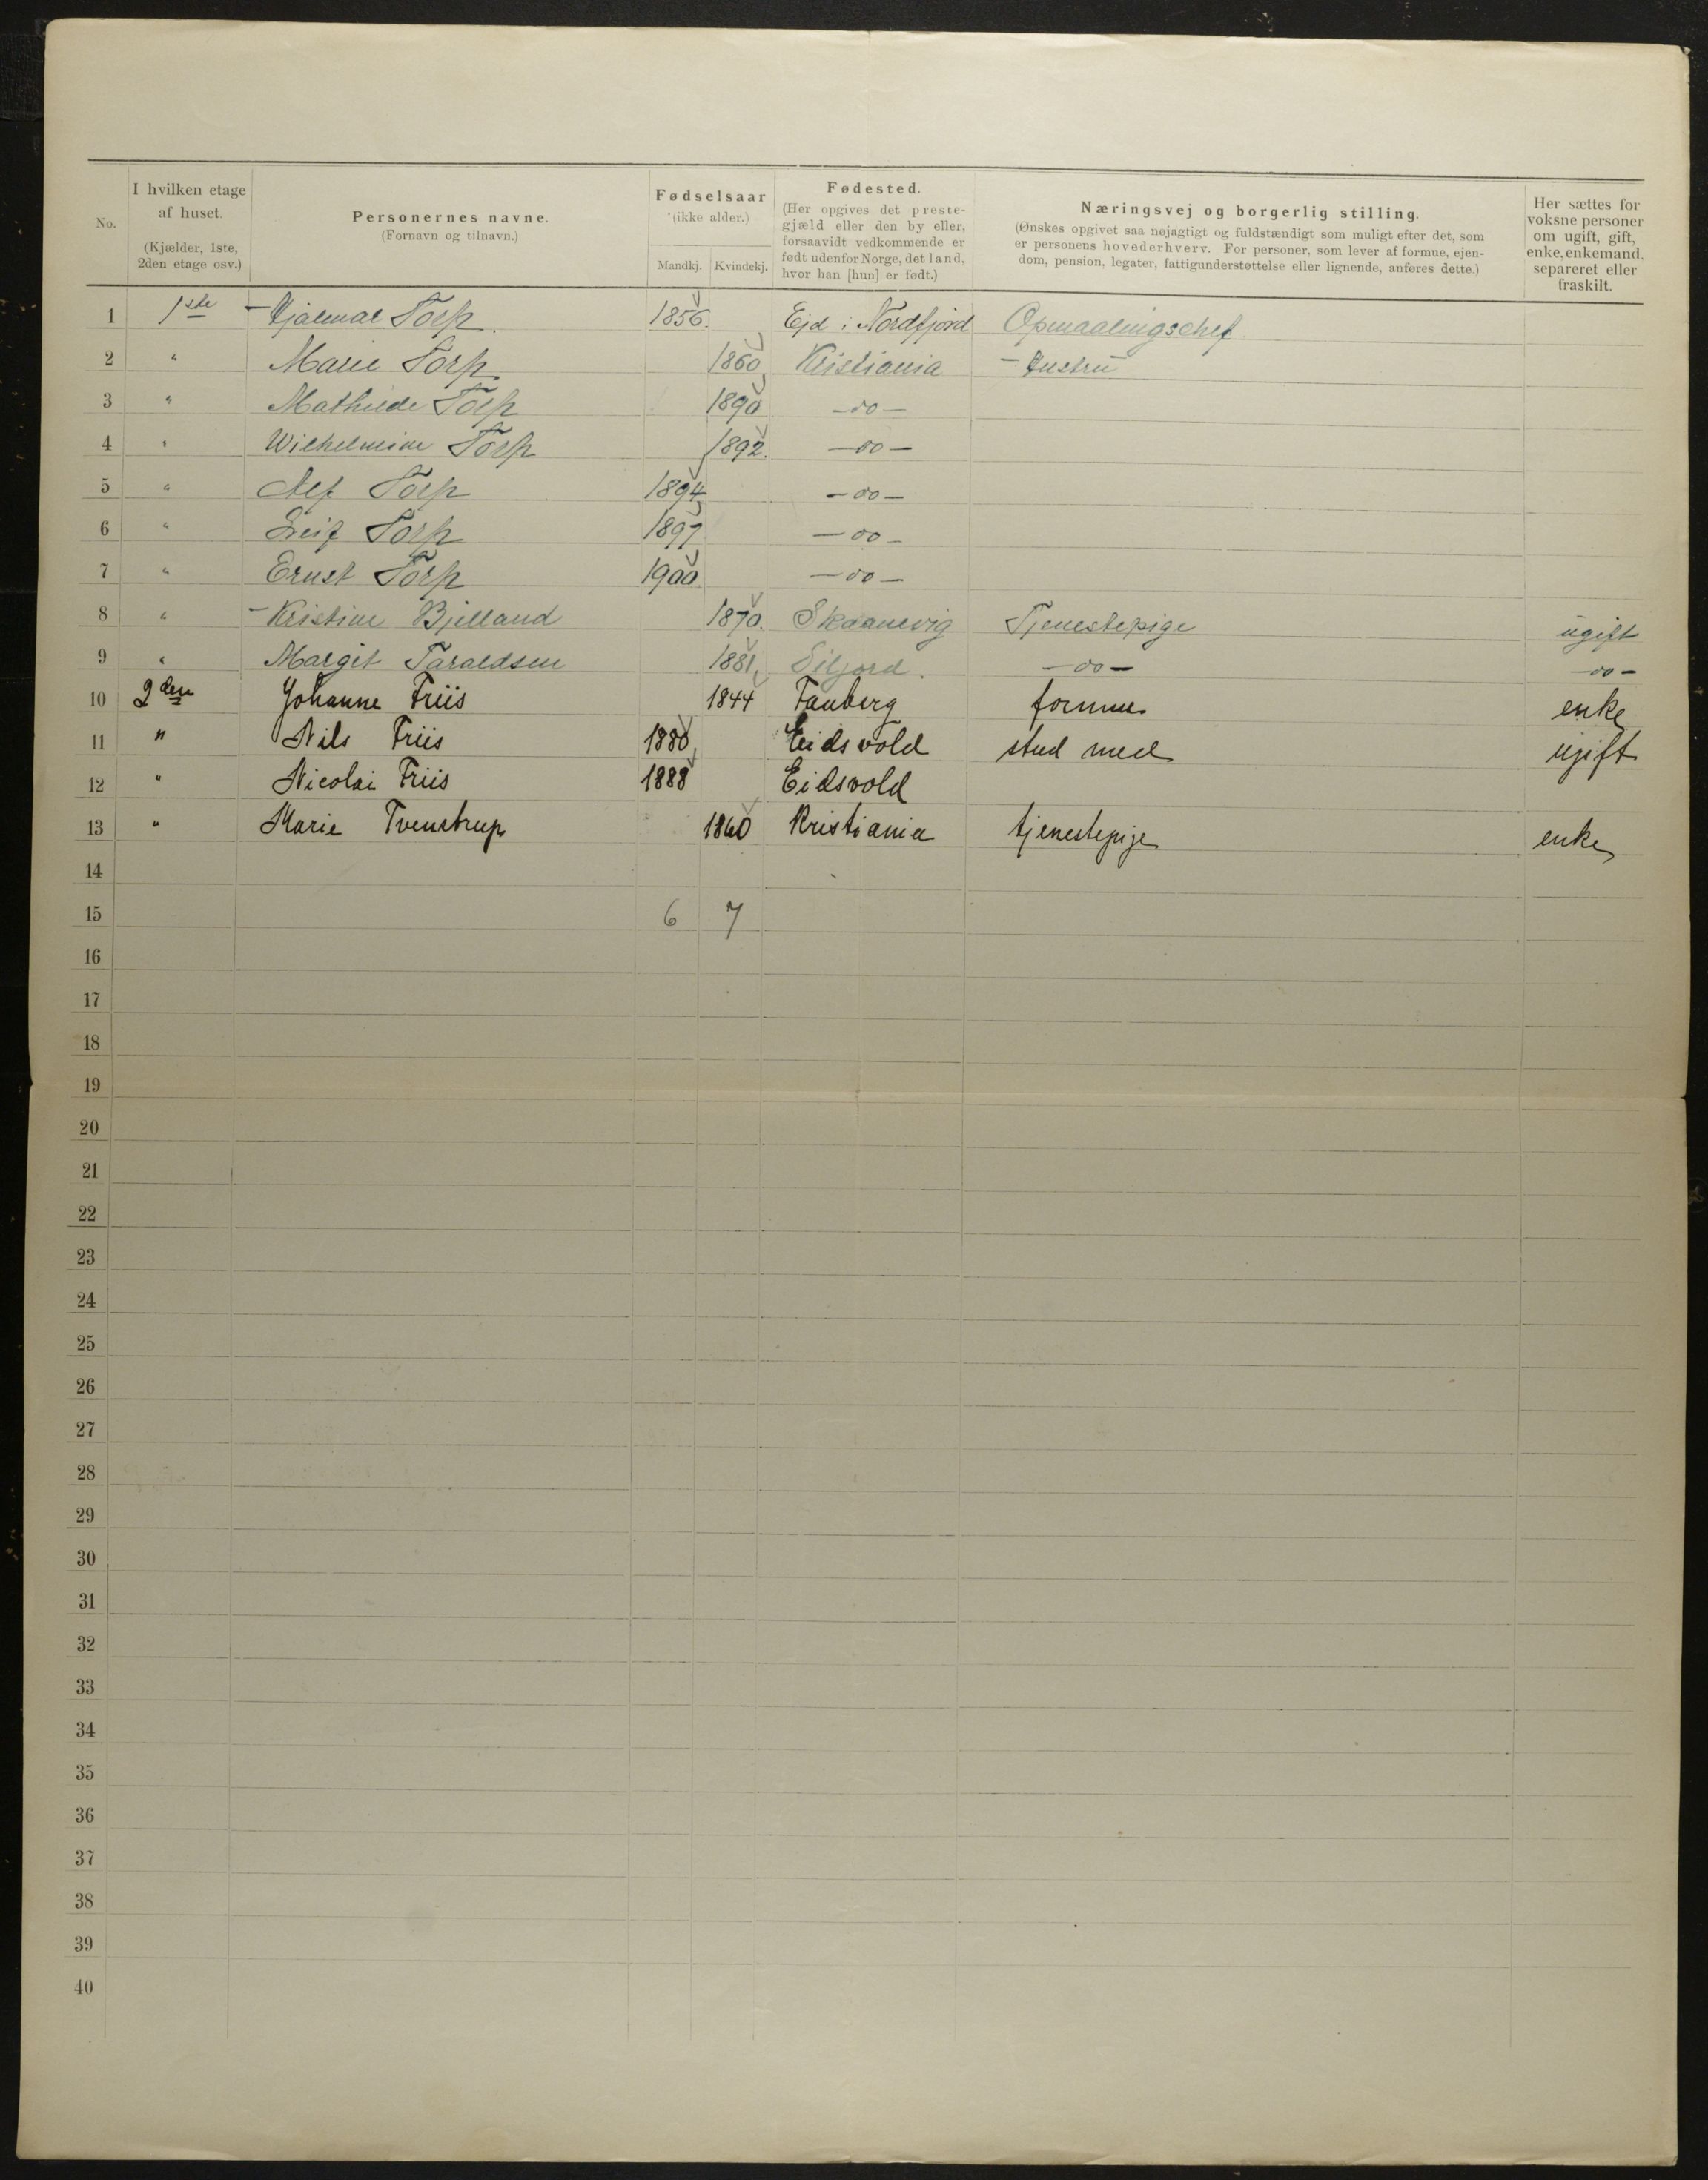 No.
I hvilken etage af huset. (Kjælder, 1ste, 2den etage osv.)
Personernes navne. (Fornavn og tilnavn.)
Fødselsaar (ikke alder.)
Mandkj. Kvindekj.
Fødested. (Her opgives det prestegjæld eller den by eller, forsaavidt vedkommende er født udenfor Norge, det land, hvor han [hun] er født.)
Næringsvej og borgerlig stilling.
(Ønskes opgivet saa nøjagtigt og fuldstændigt som muligt efter det, som
er personens hovederhverv. For personer, som lever af formue, ejen-
dom, pension, legater, fattigunderstøttelse eller lignende, anføres dette.)
Her sættes for
voksne personer
om ugift, gift,
enke, enkemand,
separeret eller
fraskilt.
1 1ste Hjalmar Torp. 1856. Ejd i Nordfjord Opmaalingschef
2 " Marie Torp 1860 Kristiania Hustru
3 " Mathilde Torp 1890 -do-
4 " Wilhelmine Torp 1892. -do-
5 " Alf Torp 1894 -do-
6 " Leif Torp 1897 -do-
7 " Ernst Torp 1900 -do-
8 " Kristine Bjelland 1870. Skaanevig Tjenestepige ugift
9 " Margit Taraldsen 1881 Siljord. -do- -do-
10 2den Johanne Friis 1844 Faaberg formue enke
11 " Nils Friis 1880 Eidsvold stud med ugift
12 " Nicolai Friis 1888 Eidsvold
13 " Marie Tvenstrup 1860 Kristiania tjenestepige enke
14
15 6 7
16
17
18
19
20
21
22
23
24
25
26
27
28
29
30
31
32
33
34
35
36
37
38
39
40